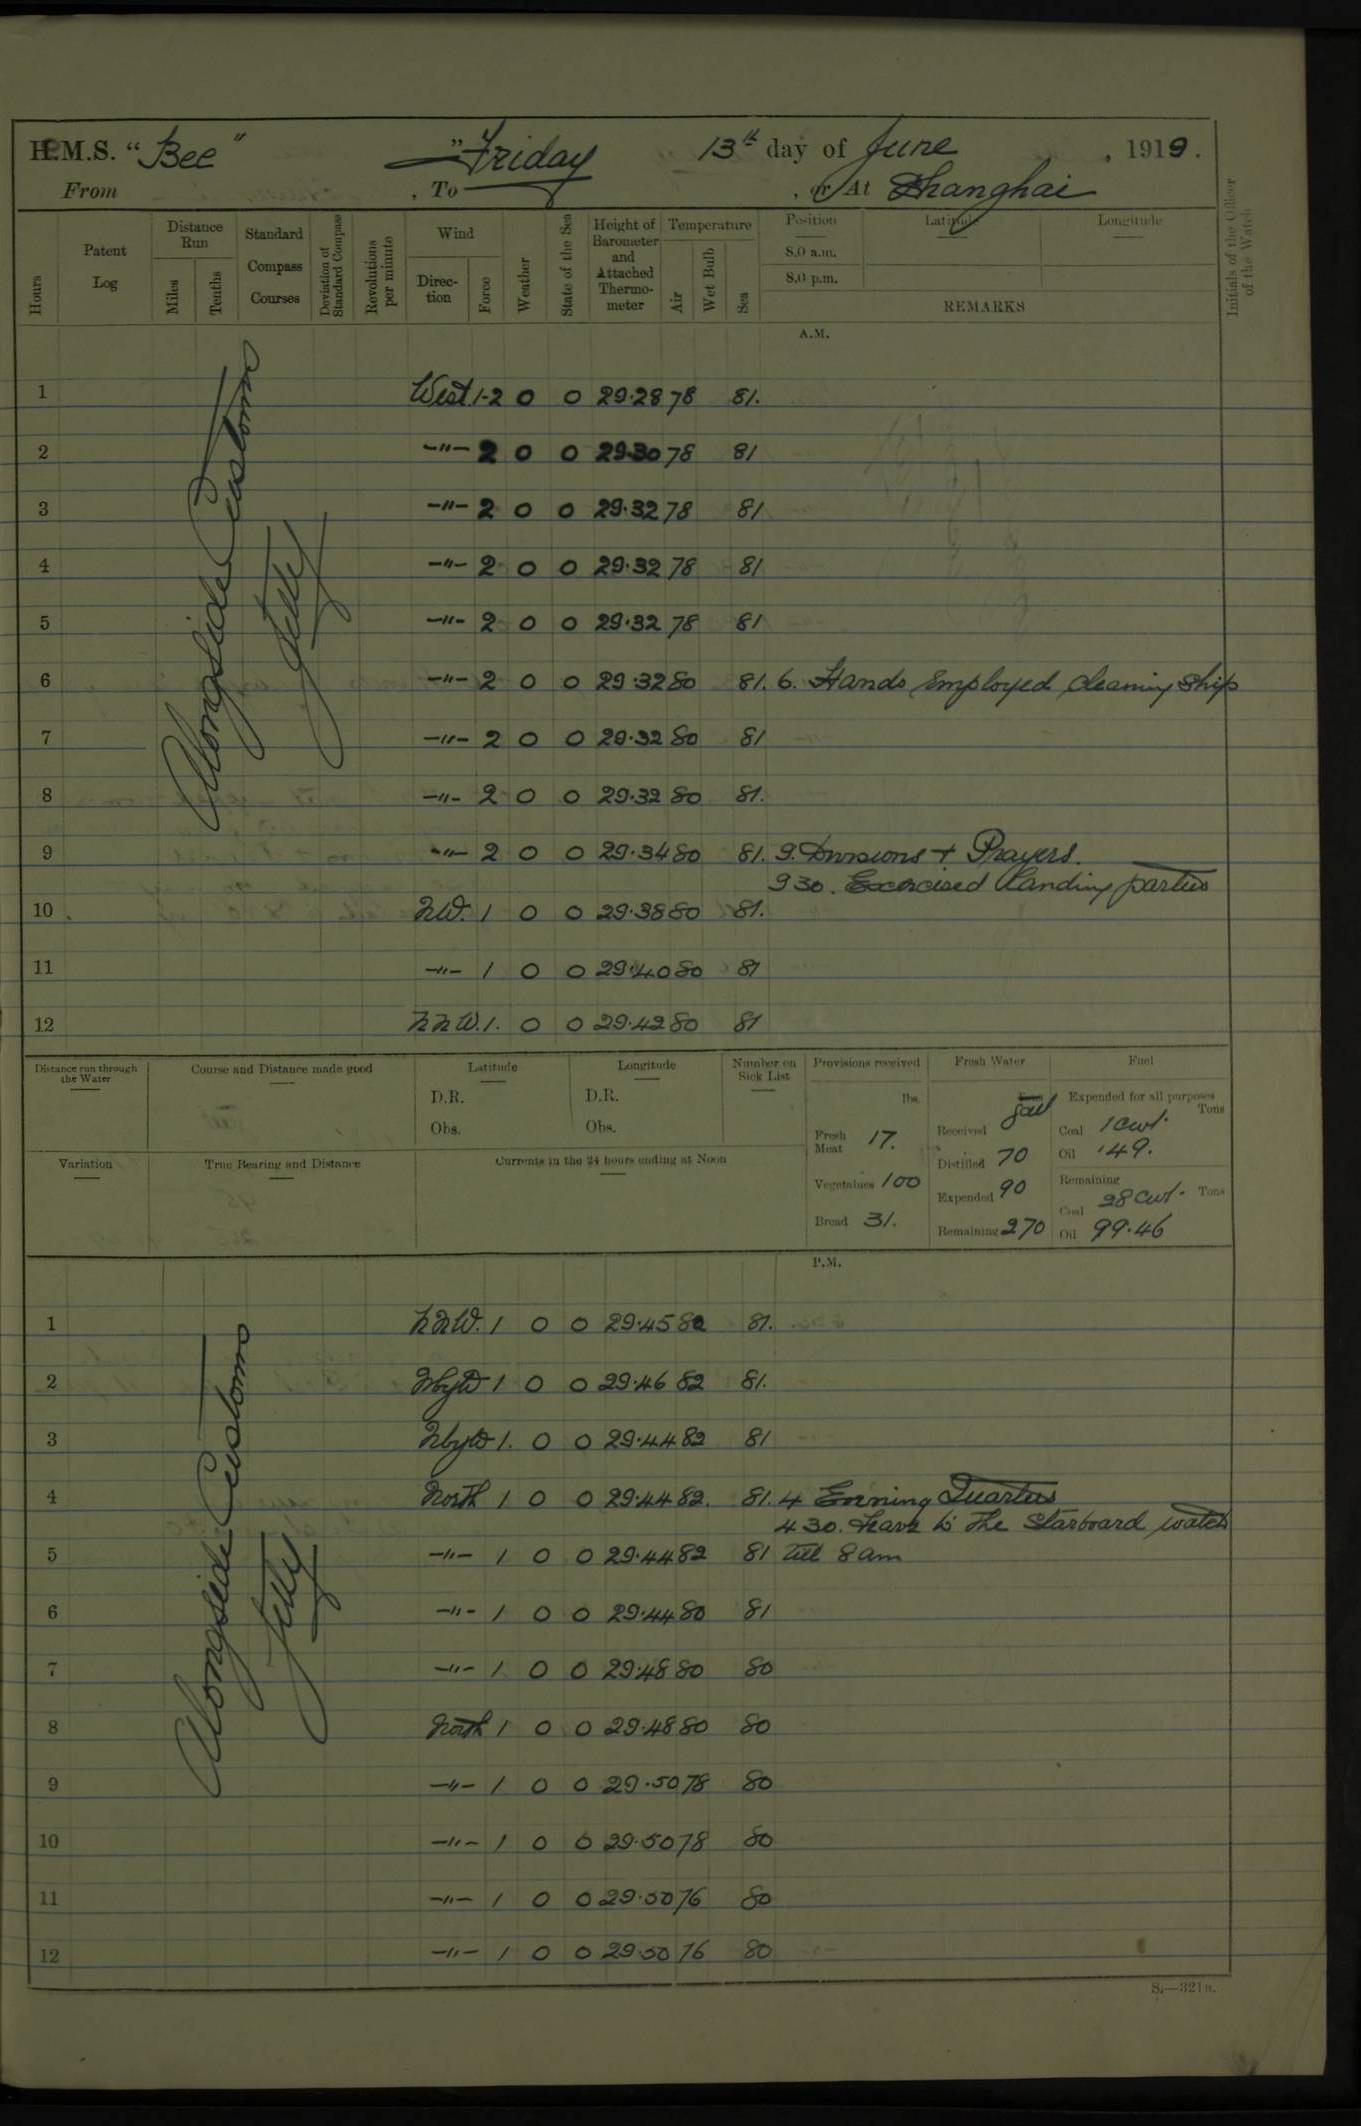 H.M.S. "Bee" "Friday 13th day of June, 1919.
From , To , or At Shanghai
Hours
Patent Log
Distance Run
Miles
Tenths
Standard Compass Courses
Deviation of Standard Compass
Revolutions per minute
Wind
Direction
Force
Weather
State of the Sea
Height of Barometer and Attached Thermometer
Temperature
Air
Wet Bulb
Sea
Position Latitude Longitude
8.0 a.m.
8.0 p.m.
REMARKS
Initials of the Officer of the Watch
A.M.
Alongside Customs
Jetty
1 West 1-2 0 0 29.28 78 81.
2 -"- 2 0 0 29.30 78 81
3 -"- 2 0 0 29.32 78 81
4 -"- 2 0 0 29.32 78 81
5 -"- 2 0 0 29.32 78 81
6 -"- 2 0 0 29.32 80 81. 6. Hands Employed cleaning ship
7 -"- 2 0 0 29.32 80 81
8 -"- 2 0 0 29.32 80 81.
9 -"- 2 0 0 29.34 80 81. 9. Divisions + Prayers.
930. Exercised landing parties
10 NW. 1 0 0 29.38 80 81.
11 -"- 1 0 0 29.40 80 81
12 NNW. 1. 0 0 29.42 80 81
Distance run through the Water
Course and Distance made good
Latitude
D.R.
Obs.
Longitude
D.R.
Obs.
Number on Sick List
Variation
True Bearing and Distance
Currents in the 24 hours ending at Noon
Provisions received
lbs.
Fresh Meat 17.
Vegetables 100
Bread 31.
Fresh Water
Tons gall
Received
Distilled 70
Expended 90
Remaining 270
Fuel
Expended for all purposes
Tons
Coal 1 cwt.
Oil .49.
Remaining
Tons
Coal 28 cwt.
Oil 99.46
P.M.
Alongside Customs
Jetty
1 NNW. 1 0 0 29.45 82 81.
2 NbyW 1 0 0 29.46 82 81.
3 NbyW 1. 0 0 29.44 82 81
4 North 1 0 0 29.44 82. 81. 4 Evening Quarters
430. Leave to the Starboard watch
5 -"- 1 0 0 29.44 82 81 till 8 am
6 -"- 1 0 0 29.44 80 81
7 -"- 1 0 0 29.48 80 80
8 North 1 0 0 29.48 80 80
9 -"- 1 0 0 29.50 78 80
10 -"- 1 0 0 29.50 78 80
11 -"- 1 0 0 29.50 76 80
12 -"- 1 0 0 29.50 76 80
S.—321B.